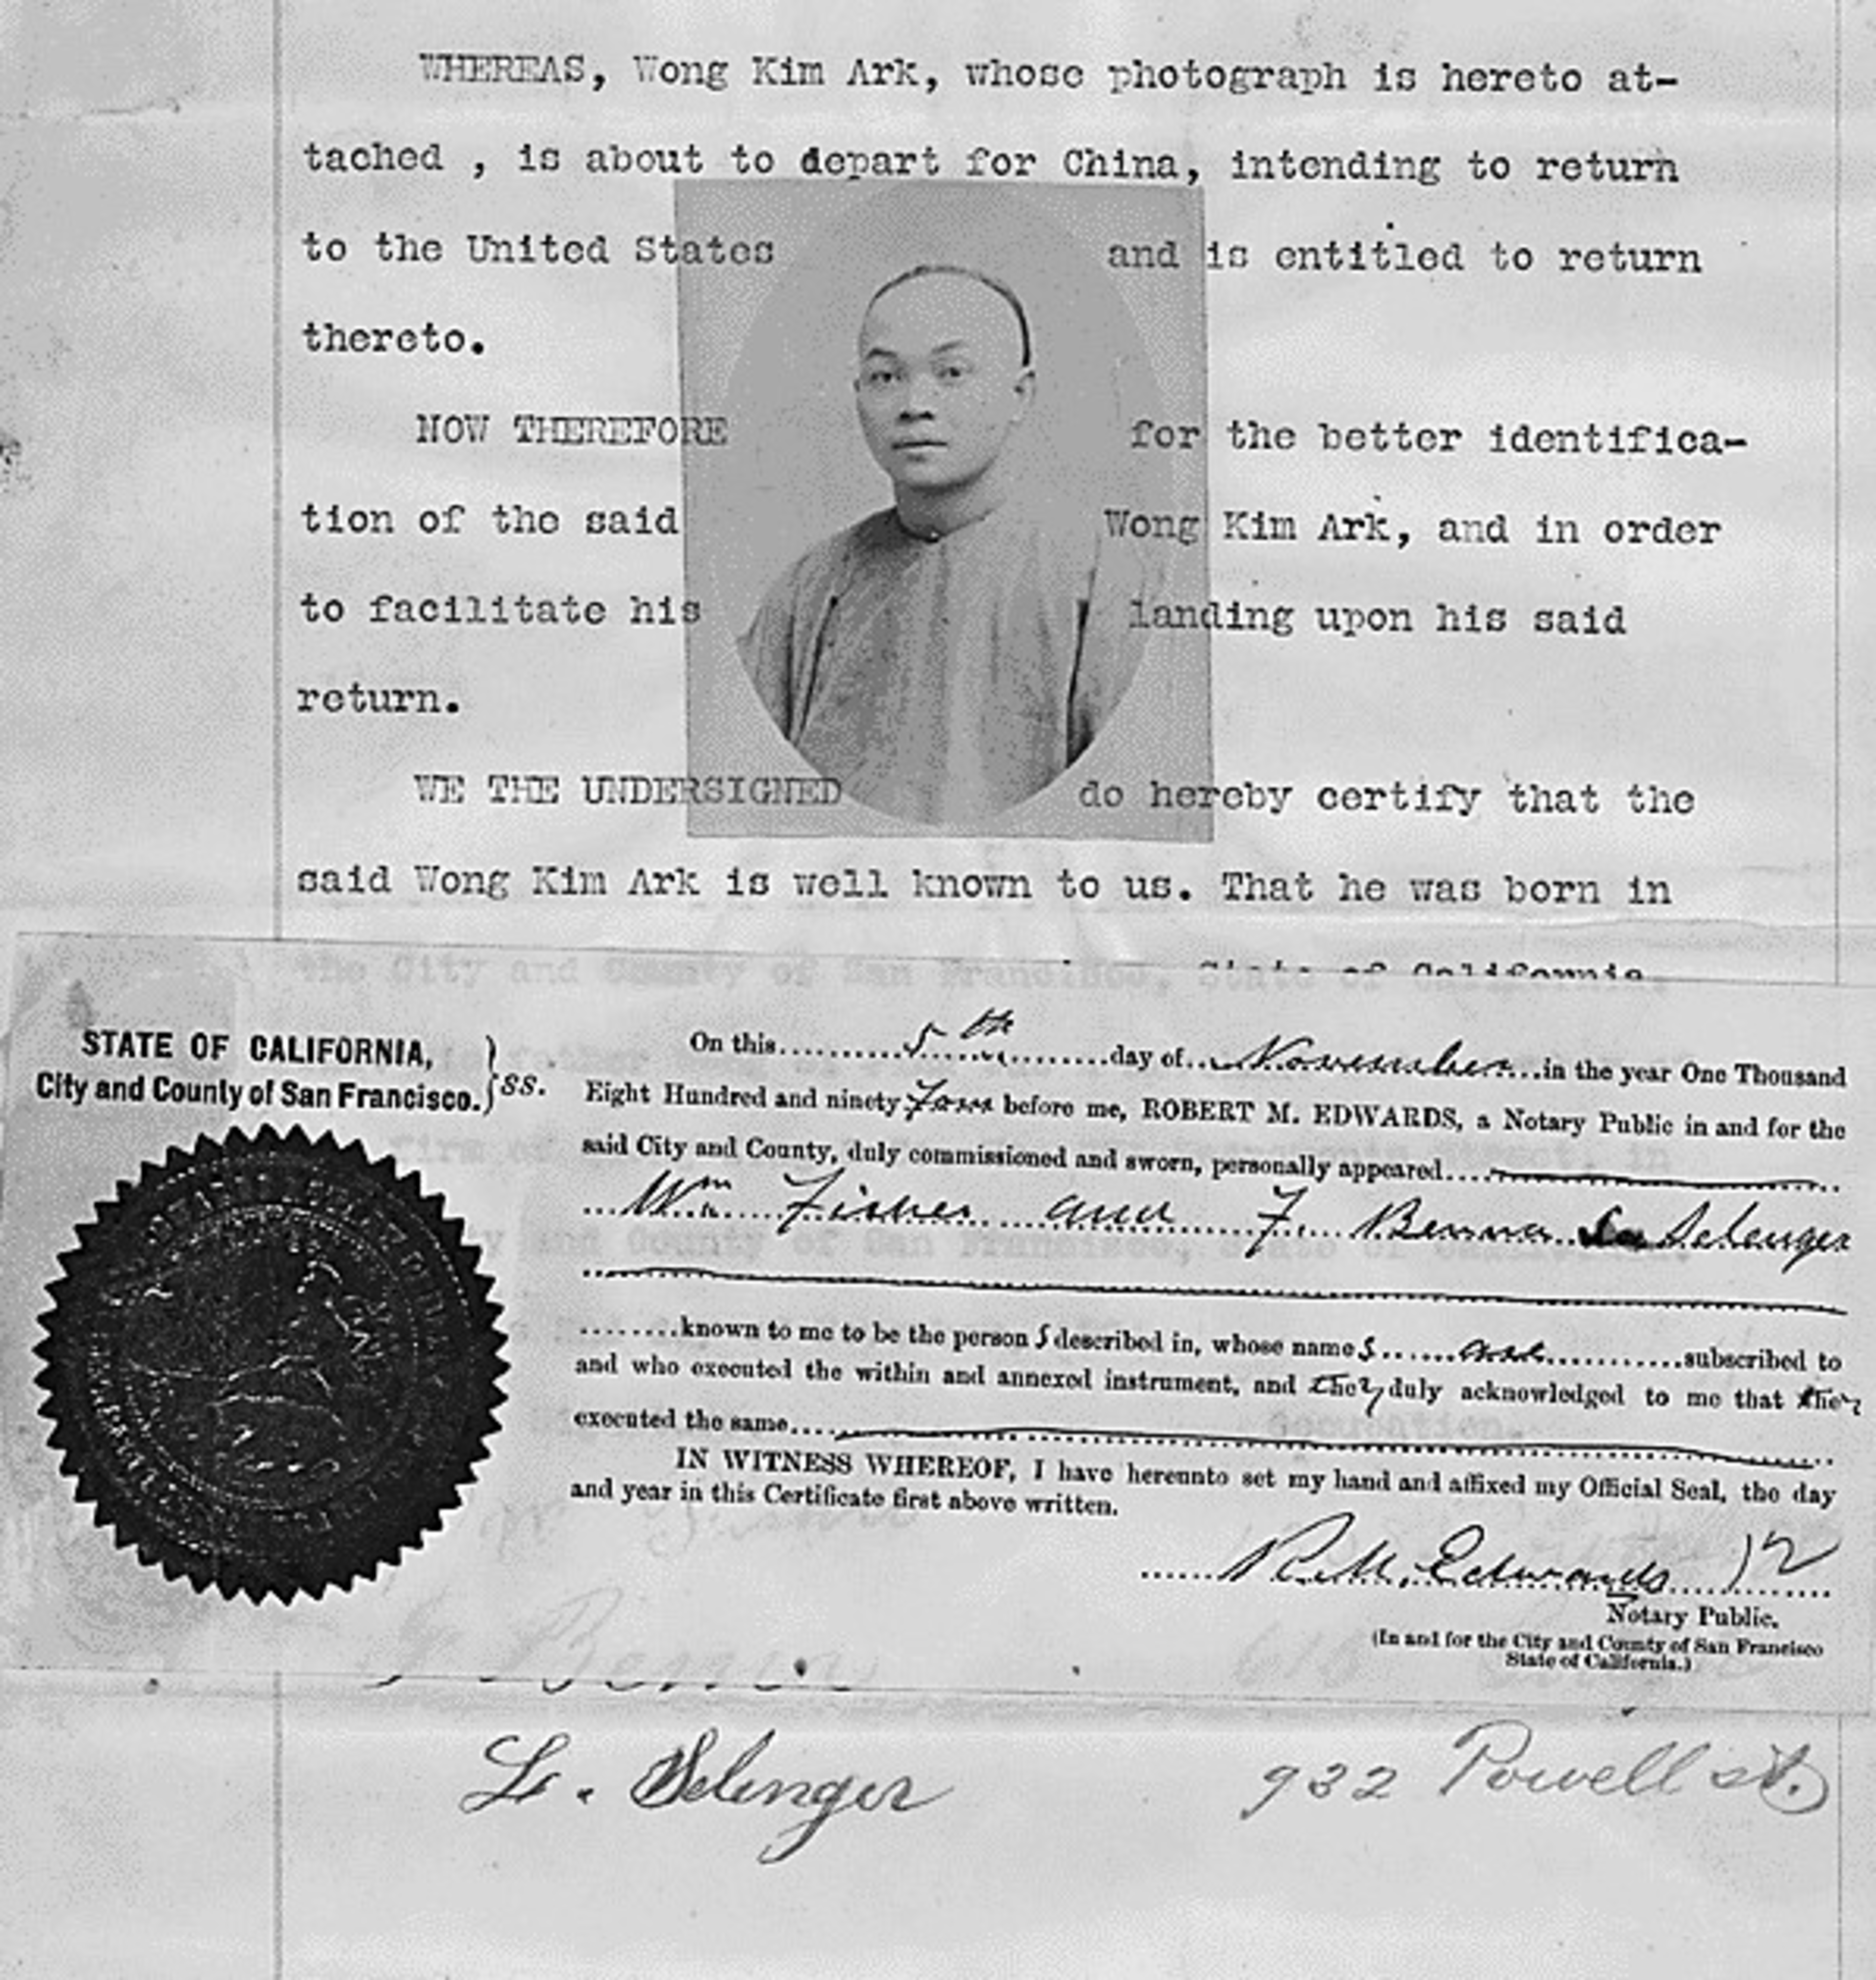 WHEREAS, Wong Kim Ark, whose photograph is hereto at-
tached , is about to depart for China, intending to return
to the United States and is entitled to return
thereto.
NOW THEREFORE for the better identifica-
tion of the said Wong Kim Ark, and in order
to facilitate his landing upon his said
return.
WE THE UNDERSIGNED do hereby certify that the
said Wong Kim Ark is well known to us. That he was born in
the City and County of San Francisco, State of California.
STATE OF CALIFORNIA,
City and County of San Francisco. } ss.
On this 5th day of November in the year One Thousand
Eight Hundred and ninety Four before me, ROBERT M. EDWARDS, a Notary Public in and for the
said City and County, duly commissioned and sworn, personally appeared
Wm Fisher and F. Benna Selenger
known to me to be the persons described in, whose names are subscribed to
and who executed the within and annexed instrument, and they duly acknowledged to me that they
executed the same
IN WITNESS WHEREOF, I have hereunto set my hand and affixed my Official Seal, the day
and year in this Certificate first above written.
R. M. Edwards
Notary Public.
(In and for the City and County of San Francisco
State of California.)
L. Selenger 932 Powell st.